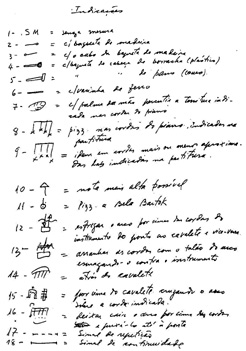 Indicações
1 - S.M = senza misura
2 - = c/ baqueta de madeira
3 - = c/ o cabo da baqueta de madeira
4 - = c/ baqueta de cabeça de borracha (plástico)
5 - = " " " de pano (couro)
6 - = c/ varinha de ferro
7 - = c/ palma da mão percutir a tessitura indicada nas cordas do piano
8 - = pizz. nas cordas do piano, indicadas na partitura
9 - = idem em cordas mais ou menos aproximadas das indicadas na partitura.
10 - = nota mais alta possível
11 - = Pizz. a Bela Bartok
12 - = esfregar o arco por cima das cordas do instrumento do ponto ao cavalete e vice-versa
13 - = arranhar as cordas com o talão do arco esmagando-o contra o instrumento
14 - = atrás do cavalete
15 - = por cima do cavalete
16 - = deitar o arco por cima das cordas
17 - = Sinal de repetição
18 - = Sinal de continuidade